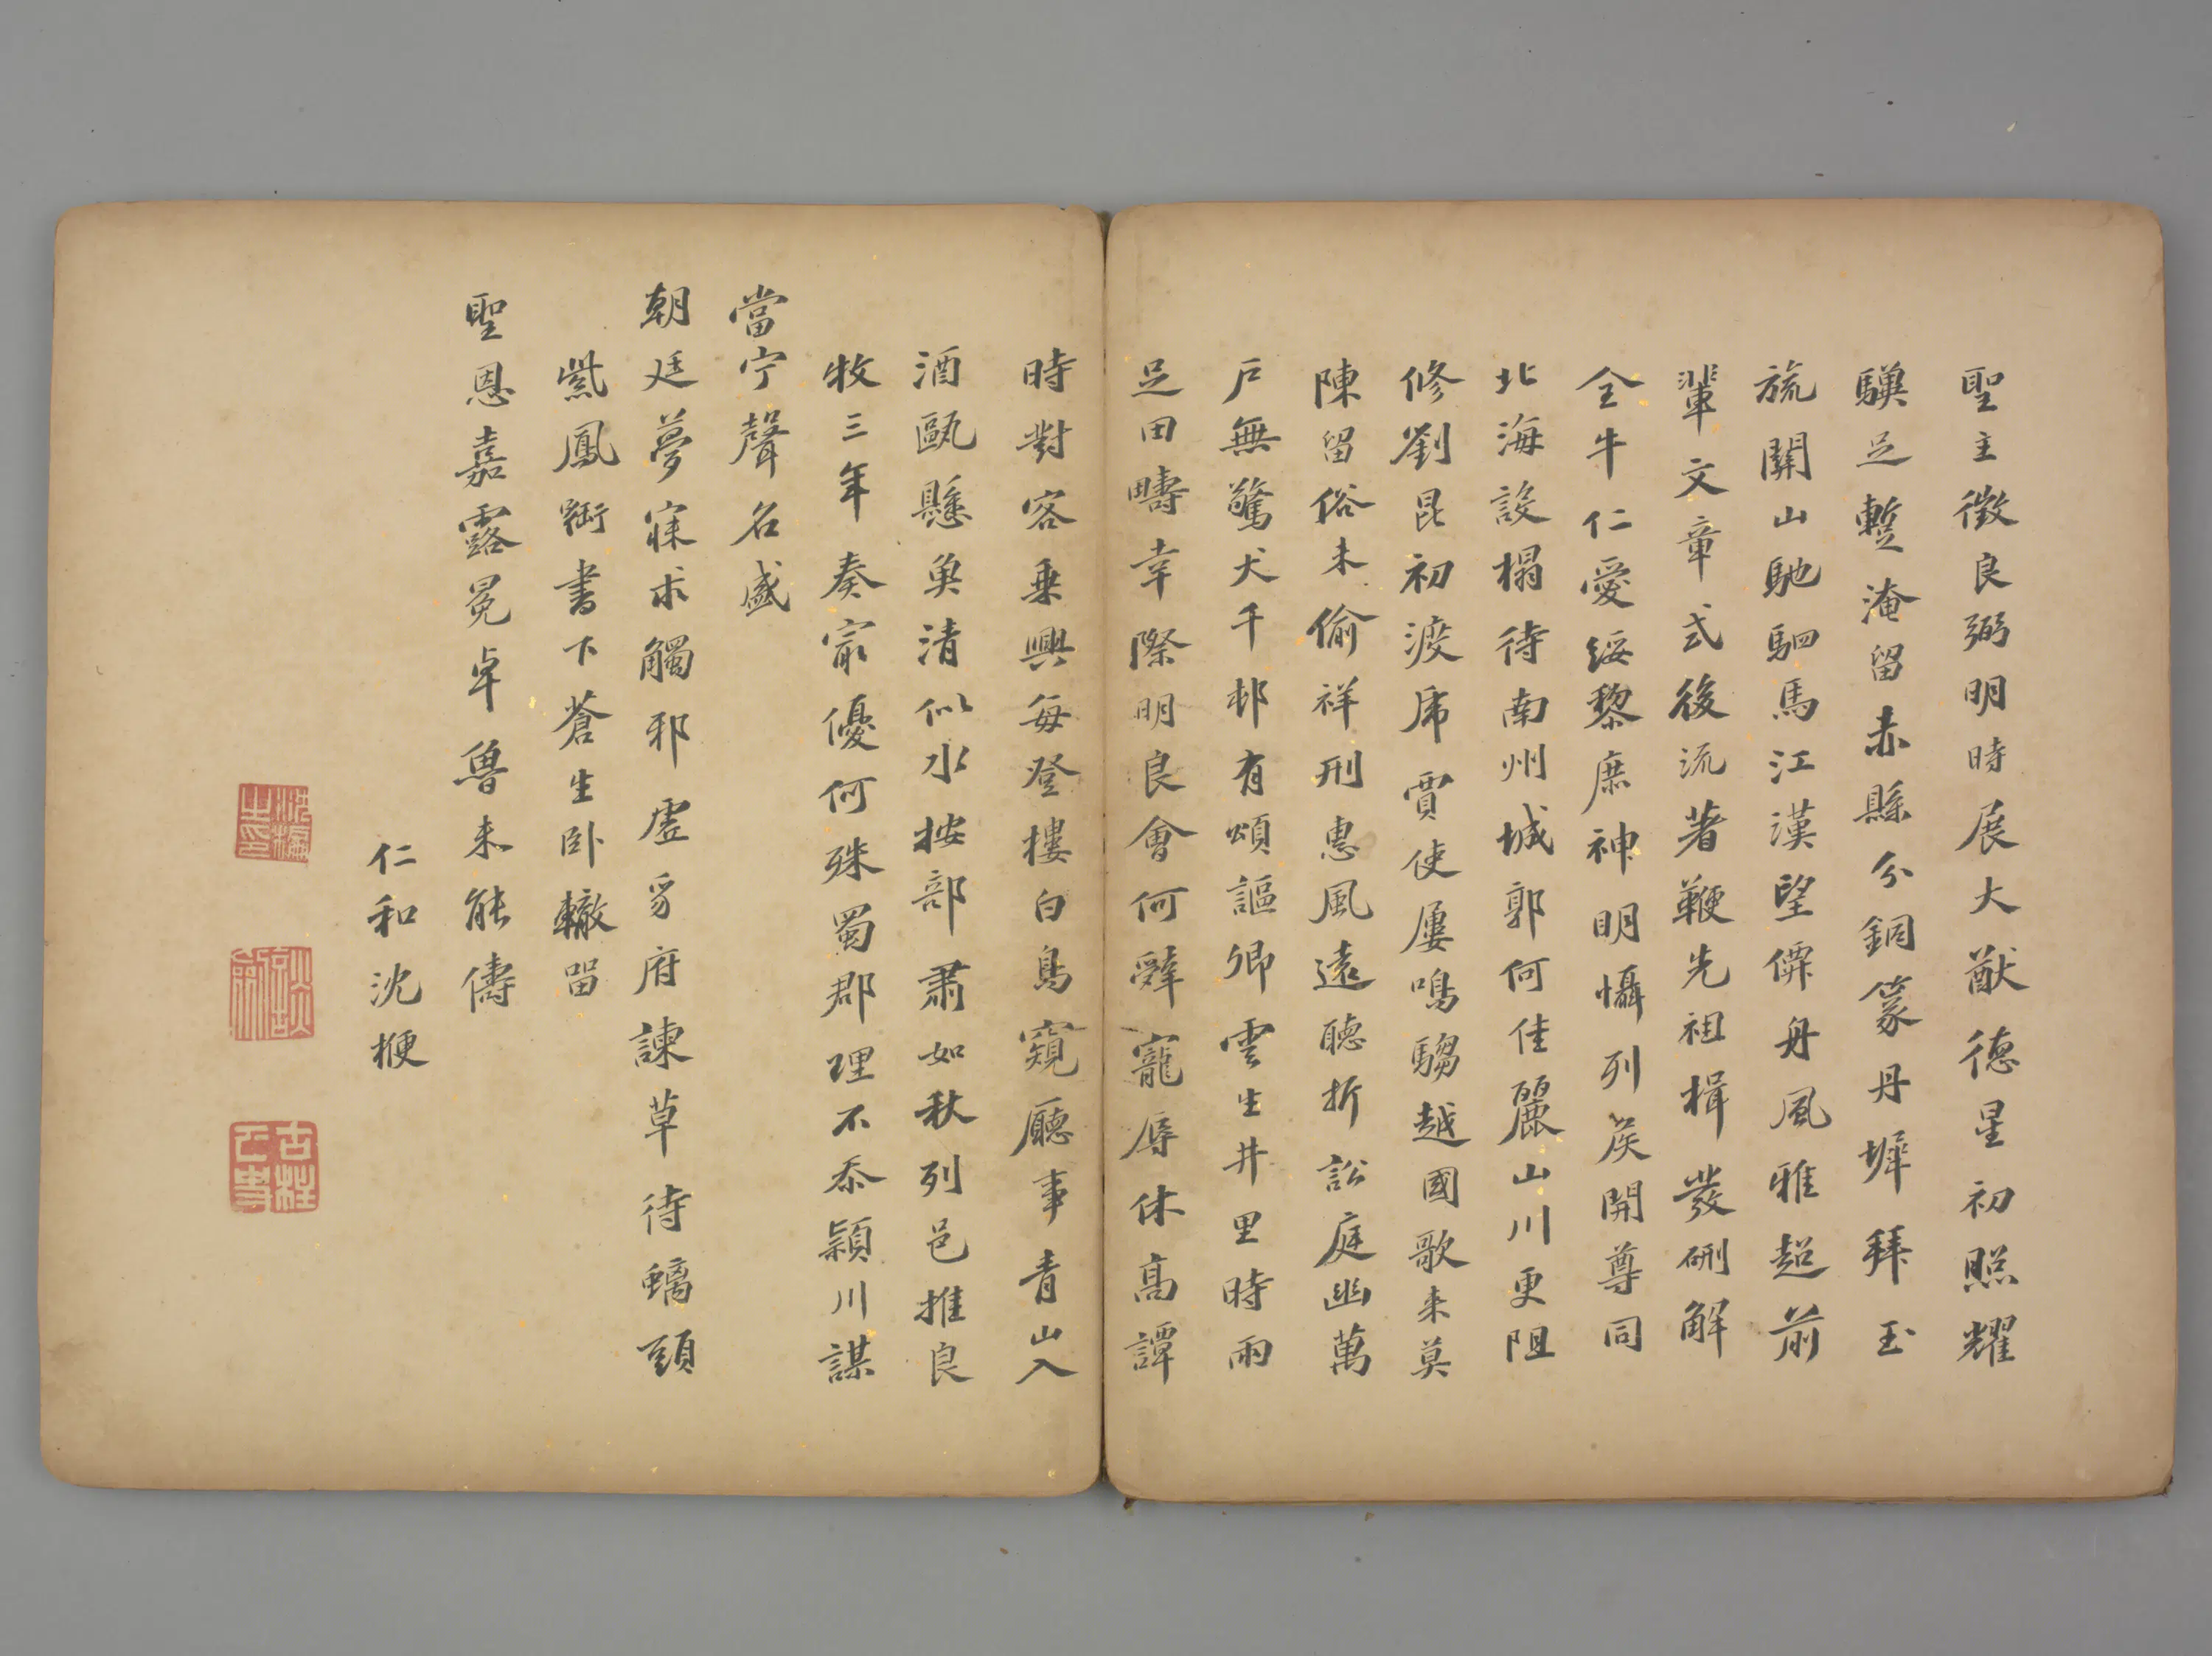 聖主徵良弼明時展大猷德星初照耀
驥足蹔淹留赤縣分銅篆丹墀拜玉
旒關山馳駟馬江漢望僊舟風雅超前
輩文章式後流著鞭先祖楫發硎解
全牛仁愛綏黎庶神明懾列矦開尊同
北海設榻待南州城郭何佳麗山川更阻
修劉昆初渡乕賈使屢鳴騶越國歌來莫
陳留俗未偷祥刑惠風遠聽折訟庭幽萬
戶無驚犬千邨有頌謳卿雲生井里時雨
足田疇幸際明良會何辭寵辱休高譚
時對客乗興每登樓白鳥窺廳事青山入
酒甌懸魚清似水按部肅如秋列邑推良
牧三年奏最優何殊蜀郡理不忝潁川謀
當宁聲名盛
朝廷夢寐求觸邪虛豸府諫草待螭頭
紫鳳銜書下蒼生臥轍留
聖恩嘉露冕卓魯未能儔
仁和沈楩
沈楩之印
古柱下史